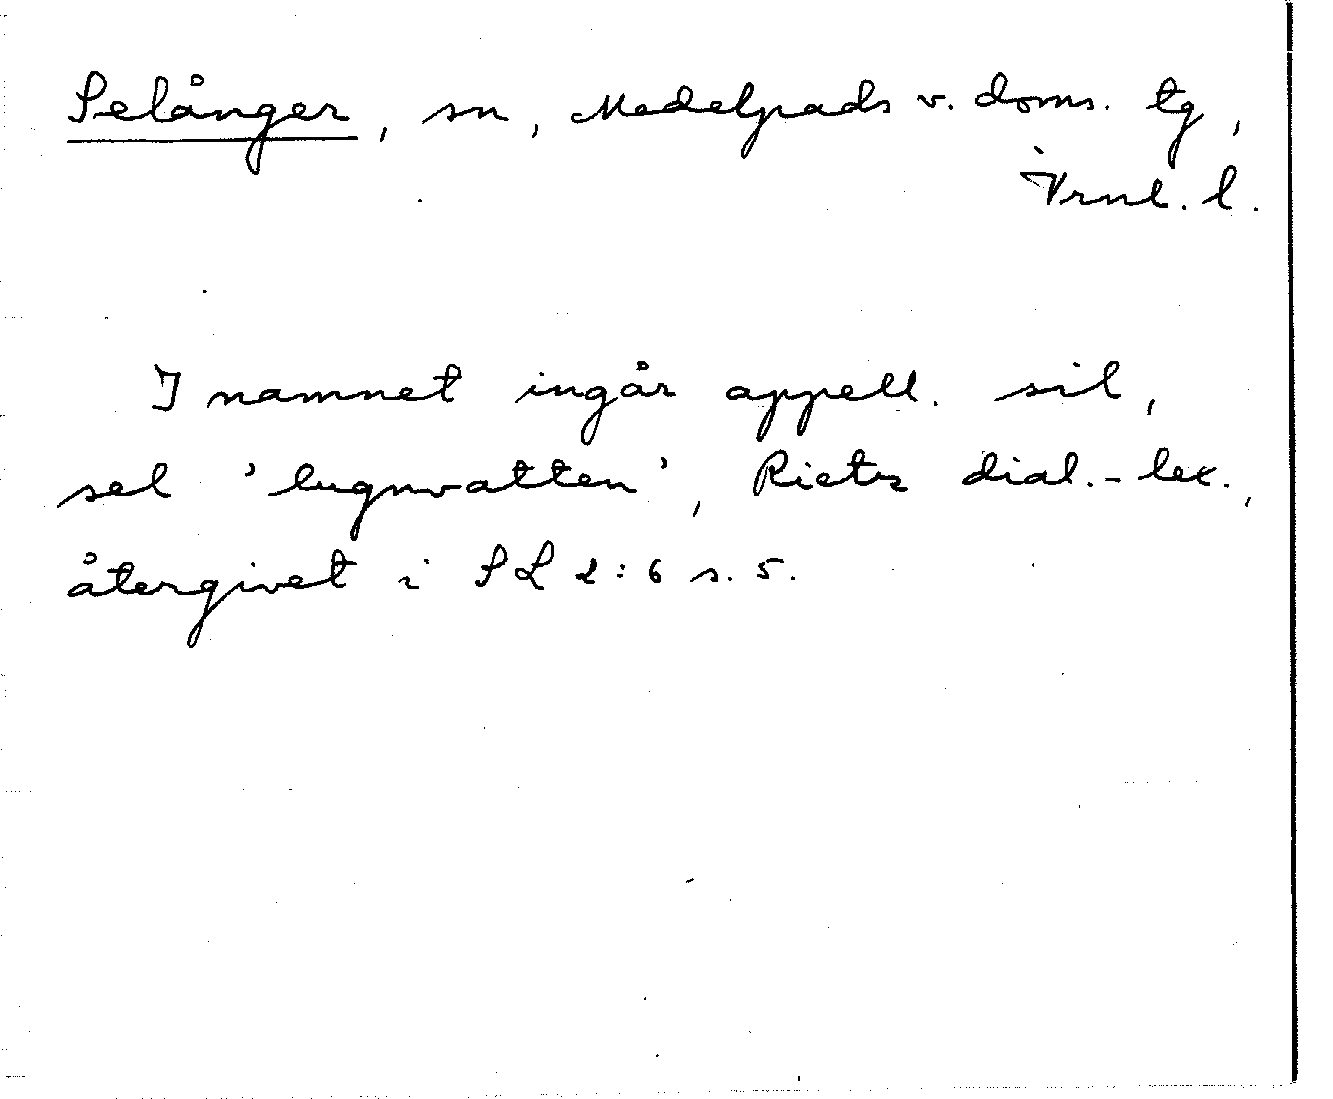 Selånger, sn, Medelpads v. doms. tg,
Vrnl. l.
I namnet ingår appell. sil,
sel 'lugnvatten', Rietz dial.-lex.,
återgivet i SL 2:6 s. 5.